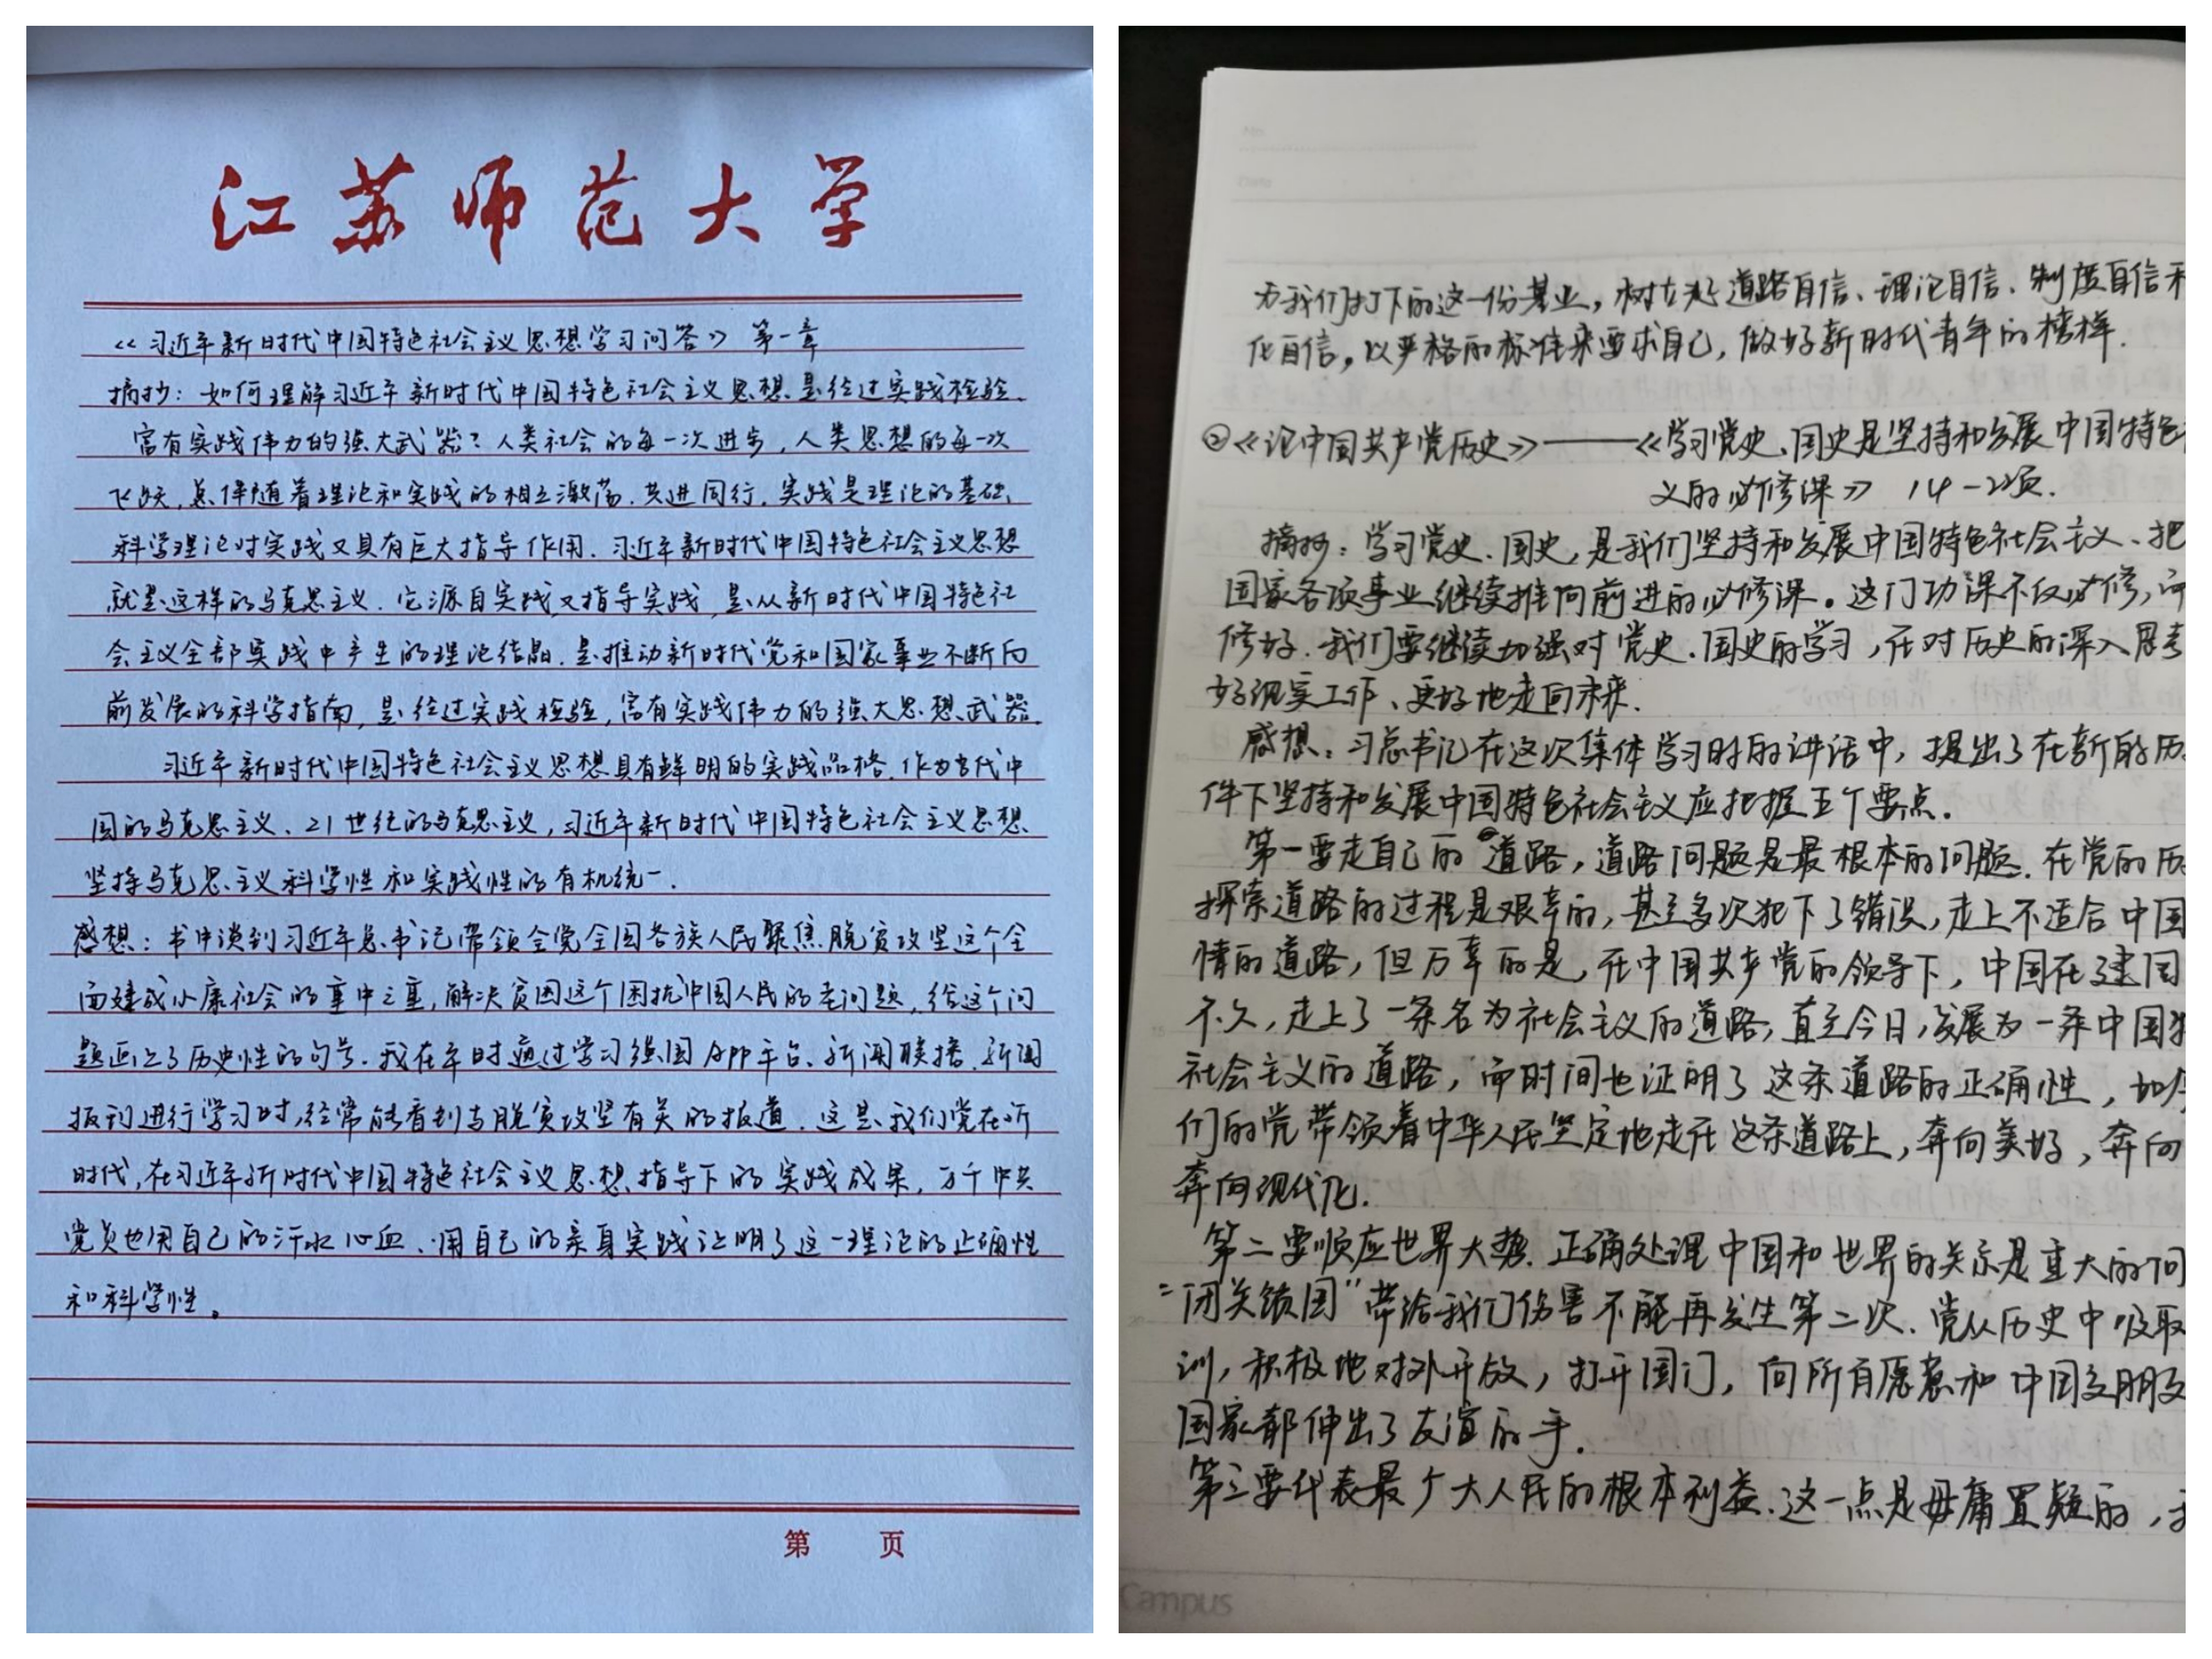 江苏师范大学
《习近平新时代中国特色社会主义思想学习问答》 第一章
摘抄：如何理解习近平新时代中国特色社会主义思想是经过实践检验、
富有实践伟力的强大武器？人类社会的每一次进步，人类思想的每一次
飞跃，总伴随着理论和实践的相互激荡、共进同行。实践是理论的基础，
科学理论对实践又具有巨大指导作用。习近平新时代中国特色社会主义思想
就是这样的马克思主义。它源自实践又指导实践，是从新时代中国特色社
会主义全部实践中产生的理论结晶，是推动新时代党和国家事业不断向
前发展的科学指南，是经过实践检验，富有实践伟力的强大思想武器。
习近平新时代中国特色社会主义思想具有鲜明的实践品格。作为当代中
国的马克思主义、21世纪的马克思主义，习近平新时代中国特色社会主义思想
坚持马克思主义科学性和实践性的有机统一。
感想：书中谈到习近平总书记带领全党全国各族人民聚焦脱贫攻坚这个全
面建成小康社会的重中之重，解决贫困这个困扰中国人民的老问题，给这个问
题画上了历史性的句号。我在平时通过学习强国APP平台、新闻联播、新闻
报刊进行学习时，经常能看到与脱贫攻坚有关的报道。这是我们党在新
时代，在习近平新时代中国特色社会主义思想指导下的实践成果，万千中共
党员也用自己的汗水心血、用自己的亲身实践证明了这一理论的正确性
和科学性。
第 页
为我们打下的这一份基业，树立起道路自信、理论自信、制度自信和
化自信，以严格的标准来要求自己，做好新时代青年的榜样。
②《论中国共产党历史》——《学习党史、国史是坚持和发展中国特色
义的必修课》 14-22页.
摘抄：学习党史、国史，是我们坚持和发展中国特色社会主义、把
国家各项事业继续推向前进的必修课。这门功课不仅必修，而
修好。我们要继续加强对党史、国史的学习，在对历史的深入思考
好现实工作、更好地走向未来.
感想：习总书记在这次集体学习时的讲话中，提出了在新的历
件下坚持和发展中国特色社会主义应把握五个要点.
第一要走自己的道路，道路问题是最根本的问题. 在党的历
探索道路的过程是艰辛的，甚至多次犯下了错误，走上不适合中国
情的道路，但万幸的是，在中国共产党的领导下，中国在建国
不久，走上了一条名为社会主义的道路，直至今日，发展为一条中国特
社会主义的道路，而时间也证明了这条道路的正确性，如今
们的党带领着中华人民坚定地走在这条道路上，奔向美好，奔向
奔向现代化.
第二要顺应世界大势. 正确处理中国和世界的关系是重大的问
“闭关锁国”带给我们伤害不能再发生第二次. 党从历史中吸取
训，积极地对外开放，打开国门，向所有愿意和中国交朋友
国家都伸出了友谊的手.
第三要代表最广大人民的根本利益. 这一点是毋庸置疑的，
Campus